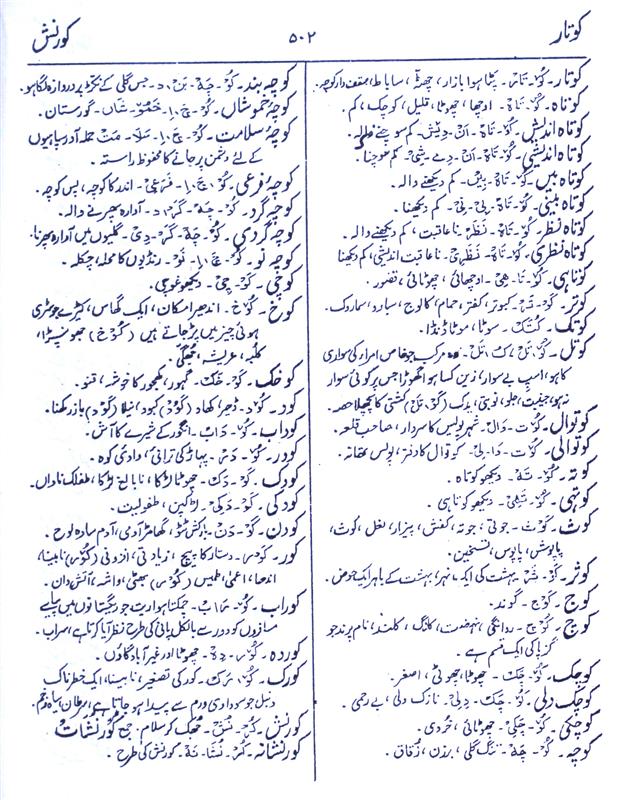 کوتار
۵۰۲
کورنش
کوتار۔ کُو۔ تَار۔ پٹا ہوا بازار، چھتہ، ساباط، مسقف دار کوچہ۔
کوتاہ۔ کُو۔ تَاہ۔ اوچھا، چھوٹا، قلیل، کوچک، کم۔
کوتاہ اندیش۔ کُو۔ تَاہ۔ اَن۔ دِیش۔ کم سوچنے والہ۔
کوتاہ اندیشی۔ کُو۔ تَاہ۔ اَن۔ دِے۔ شِی۔ کم سوچنا۔
کوتاہ بیں۔ کُو۔ تَاہ۔ بِیں۔ کم دیکھنے والہ۔
کوتاہ بینی۔ کُو۔ تَاہ۔ بِی۔ نِی۔ کم دیکھنا۔
کوتاہ نظر۔ کُو۔ تَاہ۔ نَظَر۔ نا عاقبت، کم دیکھنے والہ۔
کوتاہ نظری۔ کُو۔ تَاہ۔ نَظَرِی۔ نا عاقبت اندیشی، کم دیکھنا
کوتاہی۔ کُو۔ تَا۔ ھِی۔ اوچھائی، چھوٹائی، قصور۔
کوتر۔ کَو۔ تَر۔ کبوتر، کفتر، حمام، کالوج، سبارد، سماروک۔
کوتک۔ کُتَک۔ سوٹا، موٹا ڈنڈا۔
کوتل۔ کُو۔ تَل، ک، تَل۔ وہ مرکب جو خاص امراء کی سواری
کا ہو، اسپ بے سوار، زین کسا ہوا گھوڑا جس پر کوئی سوار
نہ ہو، جنیبت، جلو، نوبتی، یدک (کَو۔ تَل) کشتی کا پچھلا حصہ۔
کوتوال۔ کُو۔ ت۔ وَال۔ شہر پولیس کا سردار، صاحب قلعہ۔
کوتوالی۔ کُو۔ ت۔ وَا۔ لِی۔ کوتوال کا دفتر، پولس تھانہ۔
کوتہ۔ کُو۔ تَہ۔ دیکھو کوتاہ۔
کوتہی۔ کُو۔ تَہِی۔ دیکھو کوتاہی۔
کوث۔ کَوث۔ جوتی، جوتہ، کفش، پیزار، نعل، کوث،
پاپوش، پاپوس، تسخین۔
کوثر۔ کَو۔ ثَر۔ بہشت کی ایک نہر، بہشت کے باہر ایک حوض۔
کوج۔ کَوج۔ گوند۔
کوچ۔ کُوچ۔ روانگی، نہضت، کانگ، کلند، نام پرند جو
گزبا کی ایک قسم ہے۔
کوچک۔ کُو۔ چَک۔ چھوٹا، چھوٹی، اصغر۔
کوچک دلی۔ کُو۔ چَک۔ دِلِی۔ نازک دلی، بے رحمی۔
کوچکی۔ کُو۔ چَکِی۔ چھوٹائی، خُردی۔
کوچہ۔ کُو۔ چَہ۔ تنگ گلی، برزن، زُقاق۔
کوچہ بند۔ کُو۔ چَہ۔ بَن۔ د۔ جس گلی کے نکڑ پر دروازہ لگا ہو۔
کوچۂ خموشاں۔ کُو۔ چَ۔ اِ۔ خَمُو۔ شَاں۔ گورستان۔
کوچۂ سلامت۔ کُو۔ چَ۔ اِ۔ سَلَا۔ مَت۔ حملہ آور سپاہیوں
کے لئے دشمن پر جانے کا محفوظ راستہ۔
کوچۂ فرعی۔ کُو۔ چَ۔ اِ۔ فَرعِی۔ اندر کا کوچہ، پس کوچہ۔
کوچہ گرد۔ کُو۔ چَہ۔ گَر۔ د۔ آوارہ پھرنے والہ۔
کوچہ گردی۔ کُو۔ چَہ۔ گَر۔ دِی۔ گلیوں میں آوارہ پھرنا۔
کوچۂ نو۔ کُو۔ چَ۔ اِ۔ نَو۔ رنڈیوں کا محلہ، چکلہ۔
کوچی۔ کَو۔ چِی۔ دیکھو غوچی۔
کوخ۔ کُوخ۔ اندھیرا مکان، ایک گھاس، کیڑے جو سڑی
ہوئی چیز میں پڑ جاتے ہیں (کُوخ) جھونپڑا،
کلبہ، عریشہ، جھگی۔
کوخک۔ کَو۔ خَک۔ گہور، کھجور کا خوشہ، قنو۔
کود۔ کُو۔ د۔ ڈھیر، کھاد (کَود) کبود، نیلا (کَو۔ د) باز رکھنا۔
کوداب۔ کُو۔ دَاب۔ انگور کے شیرے کا آش۔
کودر۔ کَو۔ دَر۔ پہاڑ کی ترائی، وادیٔ کوہ۔
کودک۔ کَو۔ دَک۔ چھوٹا لڑکا، نابالغ لڑکا، طفلک ناداں۔
کودکی۔ کَو۔ دَکِی۔ لڑکپن، طفولیت۔
کودن۔ کَو۔ دَن۔ بارکش ٹٹو، گھامڑ آدمی، آدم سادہ لوح۔
کور۔ کَور۔ دستار کا پیچ، زیادتی، افزونی (کُور) نابینا،
اندھا، اعمیٰ، طمیس (کُور) بھٹی، داشہ، آتش دان۔
کوراب۔ کُو۔ رَاب۔ چمکتا ہوا ریت جو ریگستانوں میں پیاسے
مسافروں کو دور سے بالکل پانی کی طرح نظر آیا کرتا ہے، سراب۔
کوردہ۔ کُور۔ دِہ۔ چھوٹا اور غیر آباد گاؤں۔
کورک۔ کُو۔ رَک۔ کور کی تصغیر، نابینا، ایک خطرناک
دنبل جو سوداوی ورم سے پیدا ہو جاتا ہے، سرطان سیاہ زخم۔
کورنش۔ کُر۔ نُش۔ جھک کر سلام۔ جمع کورنشات
کورنشانہ۔ کُر۔ نُشَا۔ نَہ۔ کورنش کی طرح۔